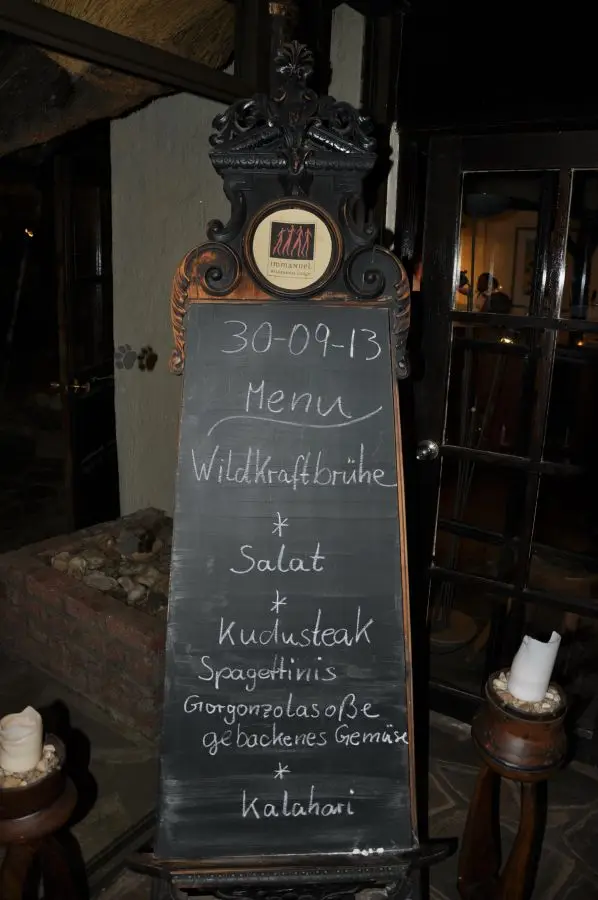 immanuel
wilderness lodge
30-09-13
Menu
Wildkraftbrühe
*
Salat
*
Kudusteak
Spagettinis
Gorgonzolasoße
gebackenes Gemüse
*
Kalahari